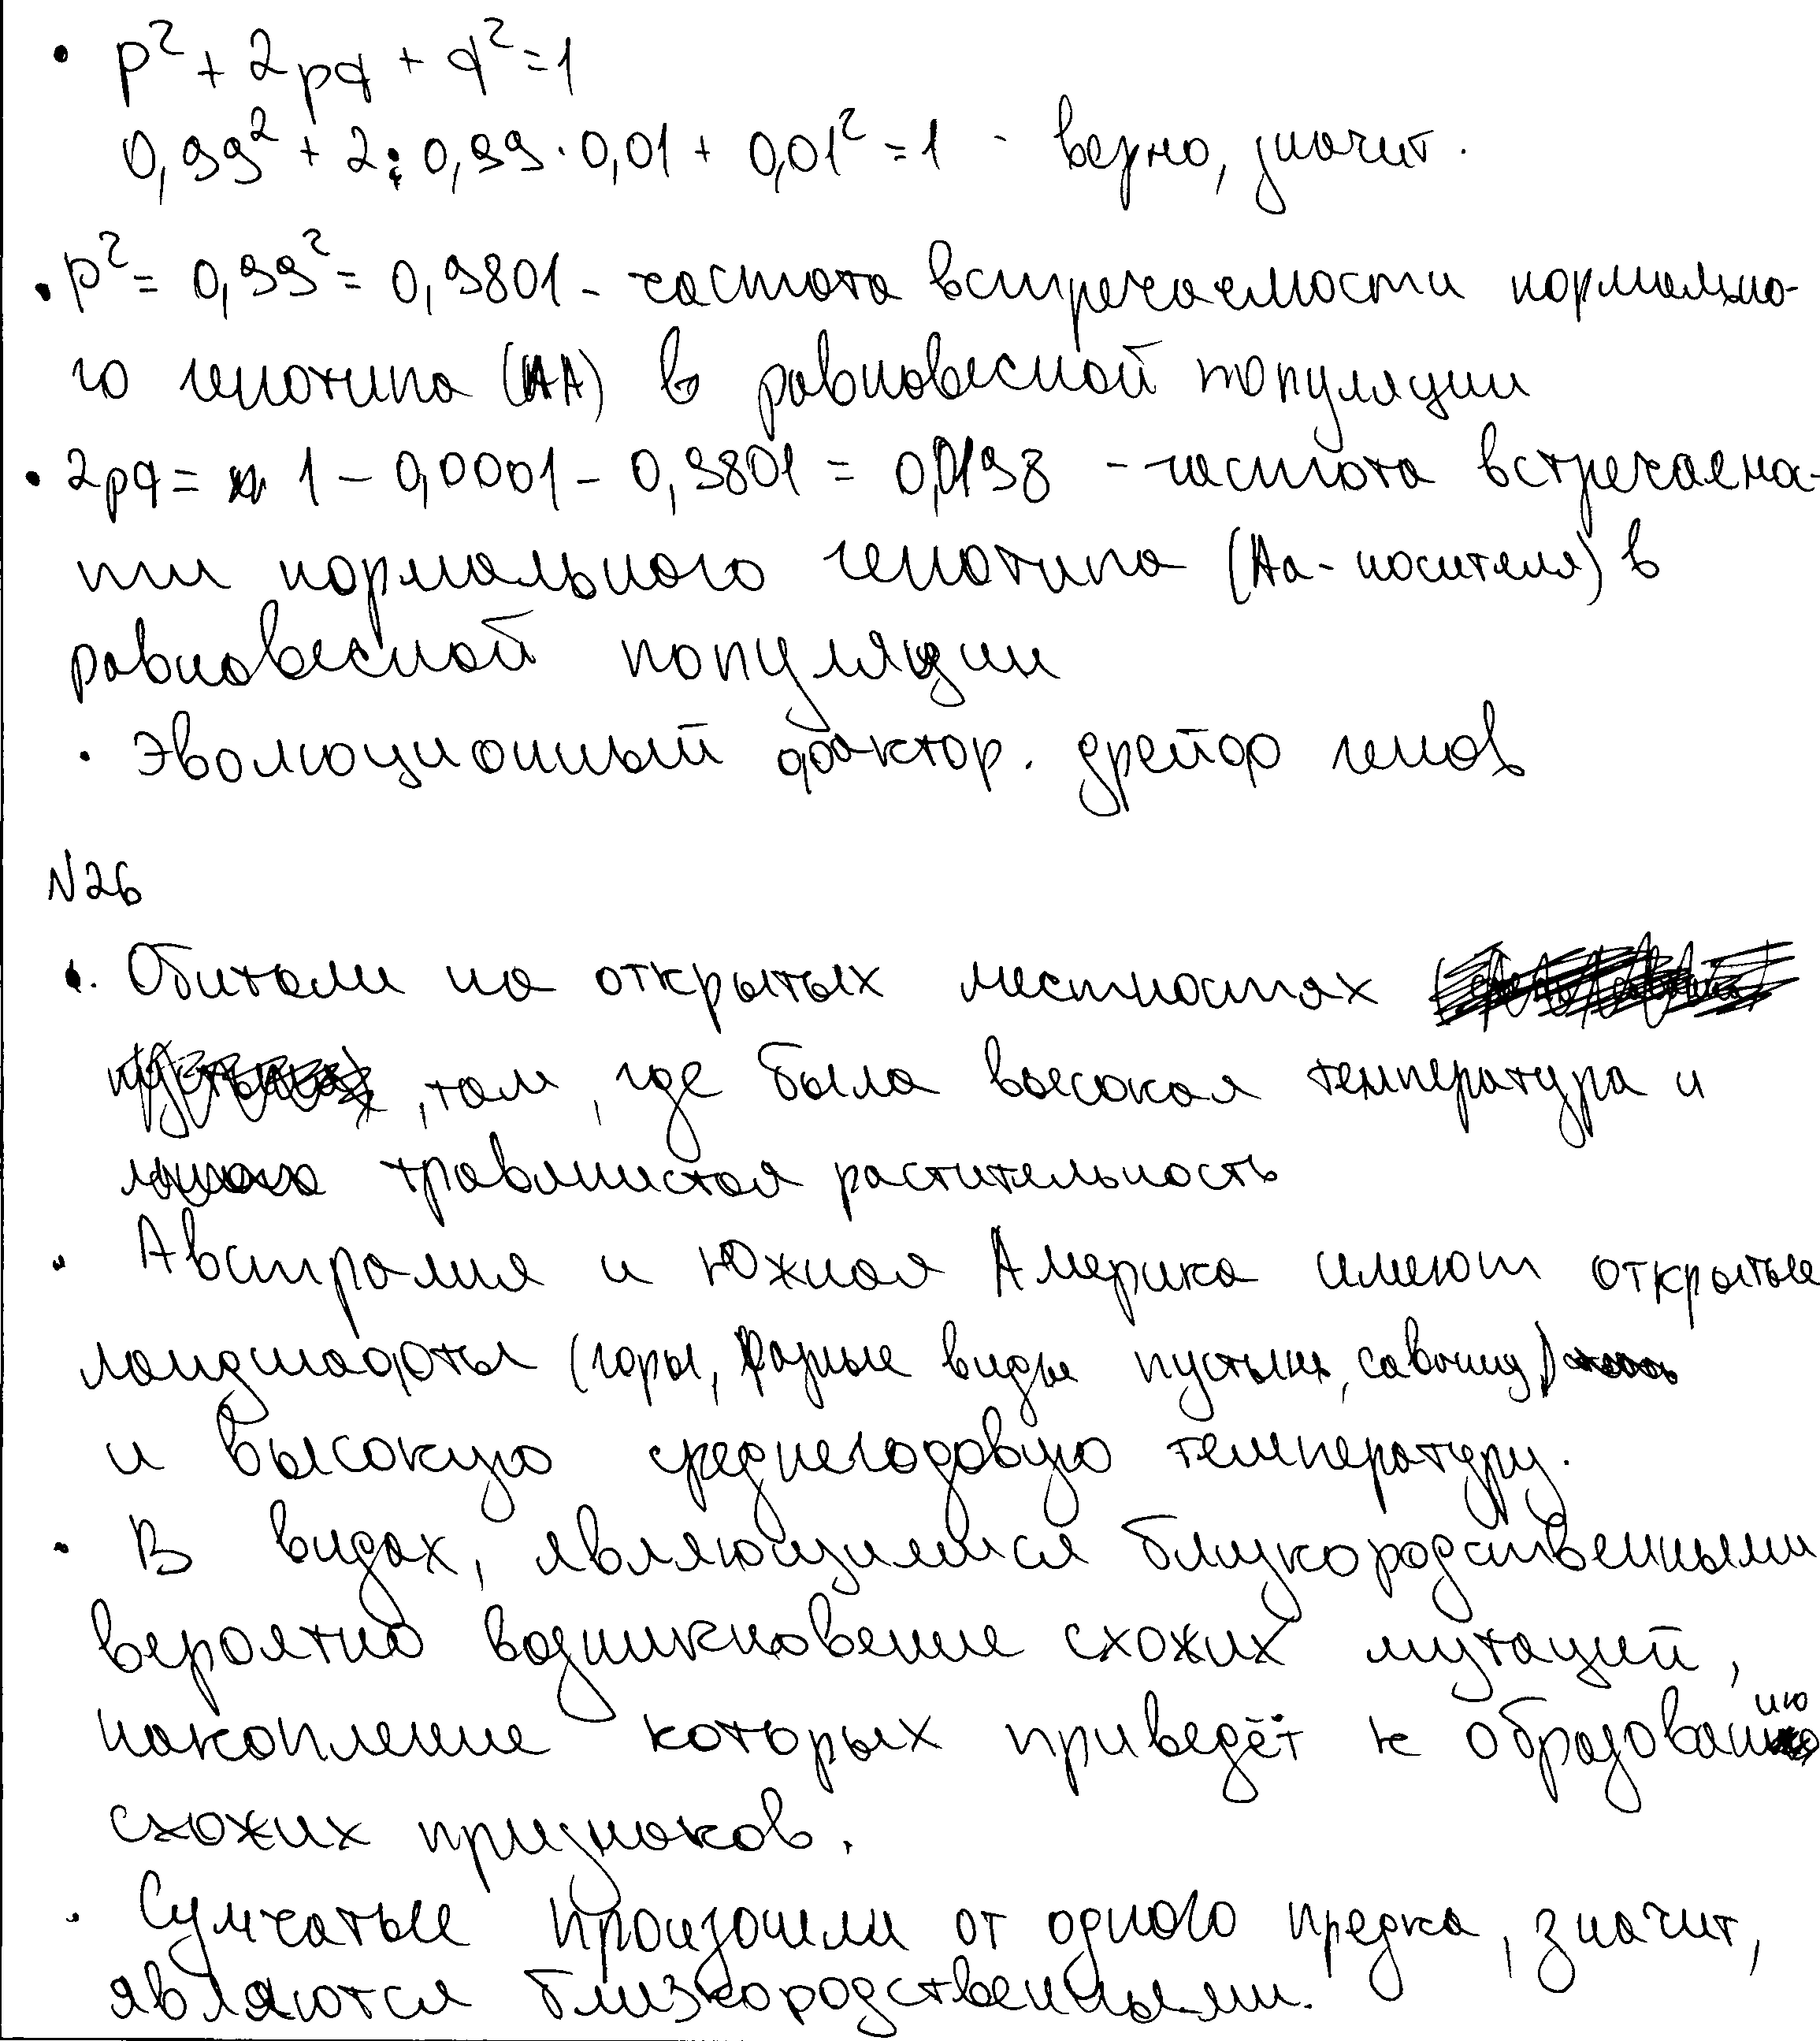 • p² + 2pq + q² = 1
0,99² + 2 · 0,99 · 0,01 + 0,01² = 1 - верно, значит.
• p² = 0,99² = 0,9801 - частота встречаемости нормально-
го генотипа (АА) в равновесной популяции
• 2pq = 1 - 0,0001 - 0,9801 = 0,0198 - частота встречаемо-
ти нормального генотипа (Аа - носителя) в
равновесной популяции
• Эволюционный фактор. дрейф генов
№26
• Обитали на открытых местностях
, там, где была высокая температура и
травянистая растительность
• Австралия и Южная Америка имеют открытые
ландшафты (горы, разные виды пустынь, саванну)
и высокую среднегодовую температуру.
• В видах, являющимися близкородственными
вероятно возникновение схожих мутаций,
накопление которых приведёт к образованию
схожих признаков.
• Сумчатые произошли от одного предка, значит,
являются близкородственными.